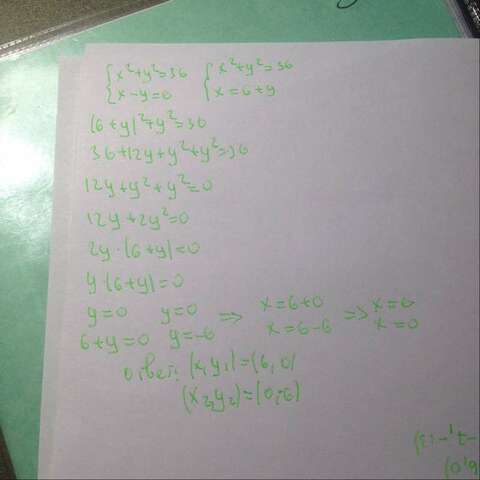 {x²+y²=36 {x²+y²=36
{x-y=6 {x=6+y
(6+y)²+y²=36
36+12y+y²+y²=36
12y+y²+y²=0
12y+2y²=0
2y·(6+y)=0
y·(6+y)=0
y=0 y=0 => x=6+0 => x=6
6+y=0 y=-6 x=6-6 x=0
ответ: (x₁y₁)=(6,0)
(x₂,y₂)=(0,-6)